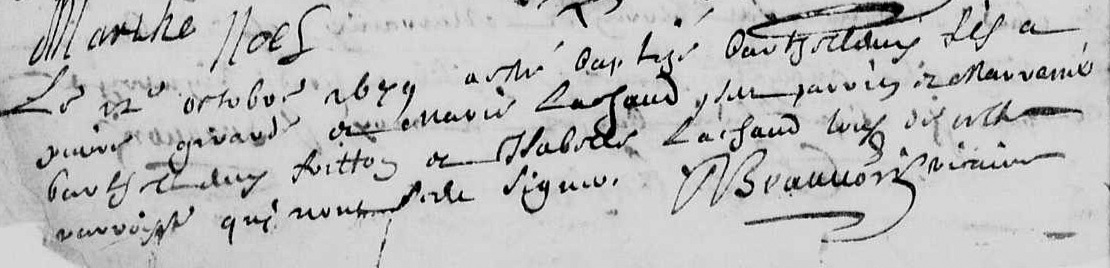 Marthe Noel
Le 12e octobre 1679 a esté baptizé Barthelemy fils a
girard et Marie Lachaud, son parrin et Marraine
Barthelemy et Isabelle Lachaud tous de cette
parroisse qui nont sceu signer. Beauvoir vicaire